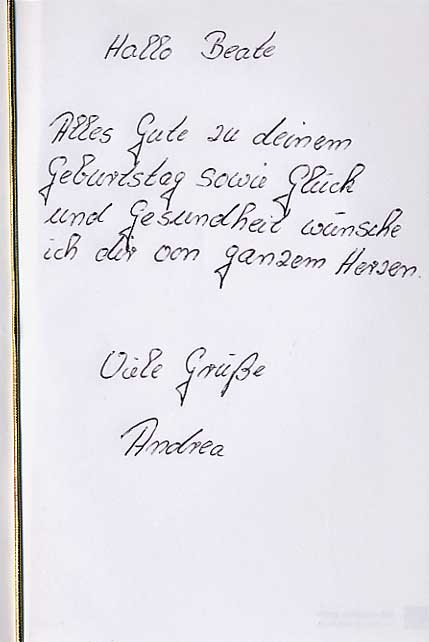 Hallo Beate
Alles Gute zu deinem
Geburtstag sowie Glück
und Gesundheit wünsche
ich dir von ganzem Herzen.
Viele Grüße
Andrea